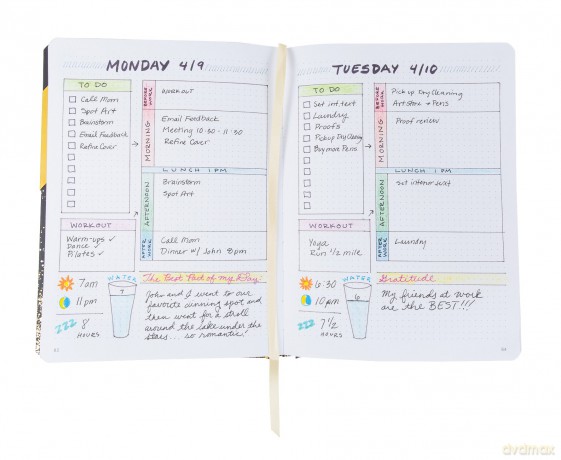 MONDAY 4/9
TO DO
Call Mom
Spot Art
Brainstorm
Email Feedback
Refine Cover
BEFORE WORK
WORKOUT
MORNING
Email Feedback
Meeting 10:30 - 11:30
Refine Cover
LUNCH 1PM
AFTERNOON
Brainstorm
Spot Art
AFTER WORK
Call Mom
Dinner w/ John 8pm
WORKOUT
Warm-ups ✓
Dance ✓
Pilates ✓
7am
11pm
zzz 8
HOURS
WATER
7
The Best Part of my Day:
John and I went to our
favorite dining spot and
then went for a stroll
around the lake under the
stars... so romantic!
TUESDAY 4/10
TO DO
Set int. text
Laundry
Proofs
Pickup Dry Cleaning
Buy more Pens
BEFORE WORK
Pick up Dry Cleaning
Art Store + Pens
MORNING
Proof review
LUNCH 1PM
AFTERNOON
Set interior text
AFTER WORK
Laundry
WORKOUT
Yoga
Run 1/2 mile
6:30
10pm
zzz 7 1/2
HOURS
WATER
6
Gratitude
My friends at work
are the BEST!!!
dvdmax